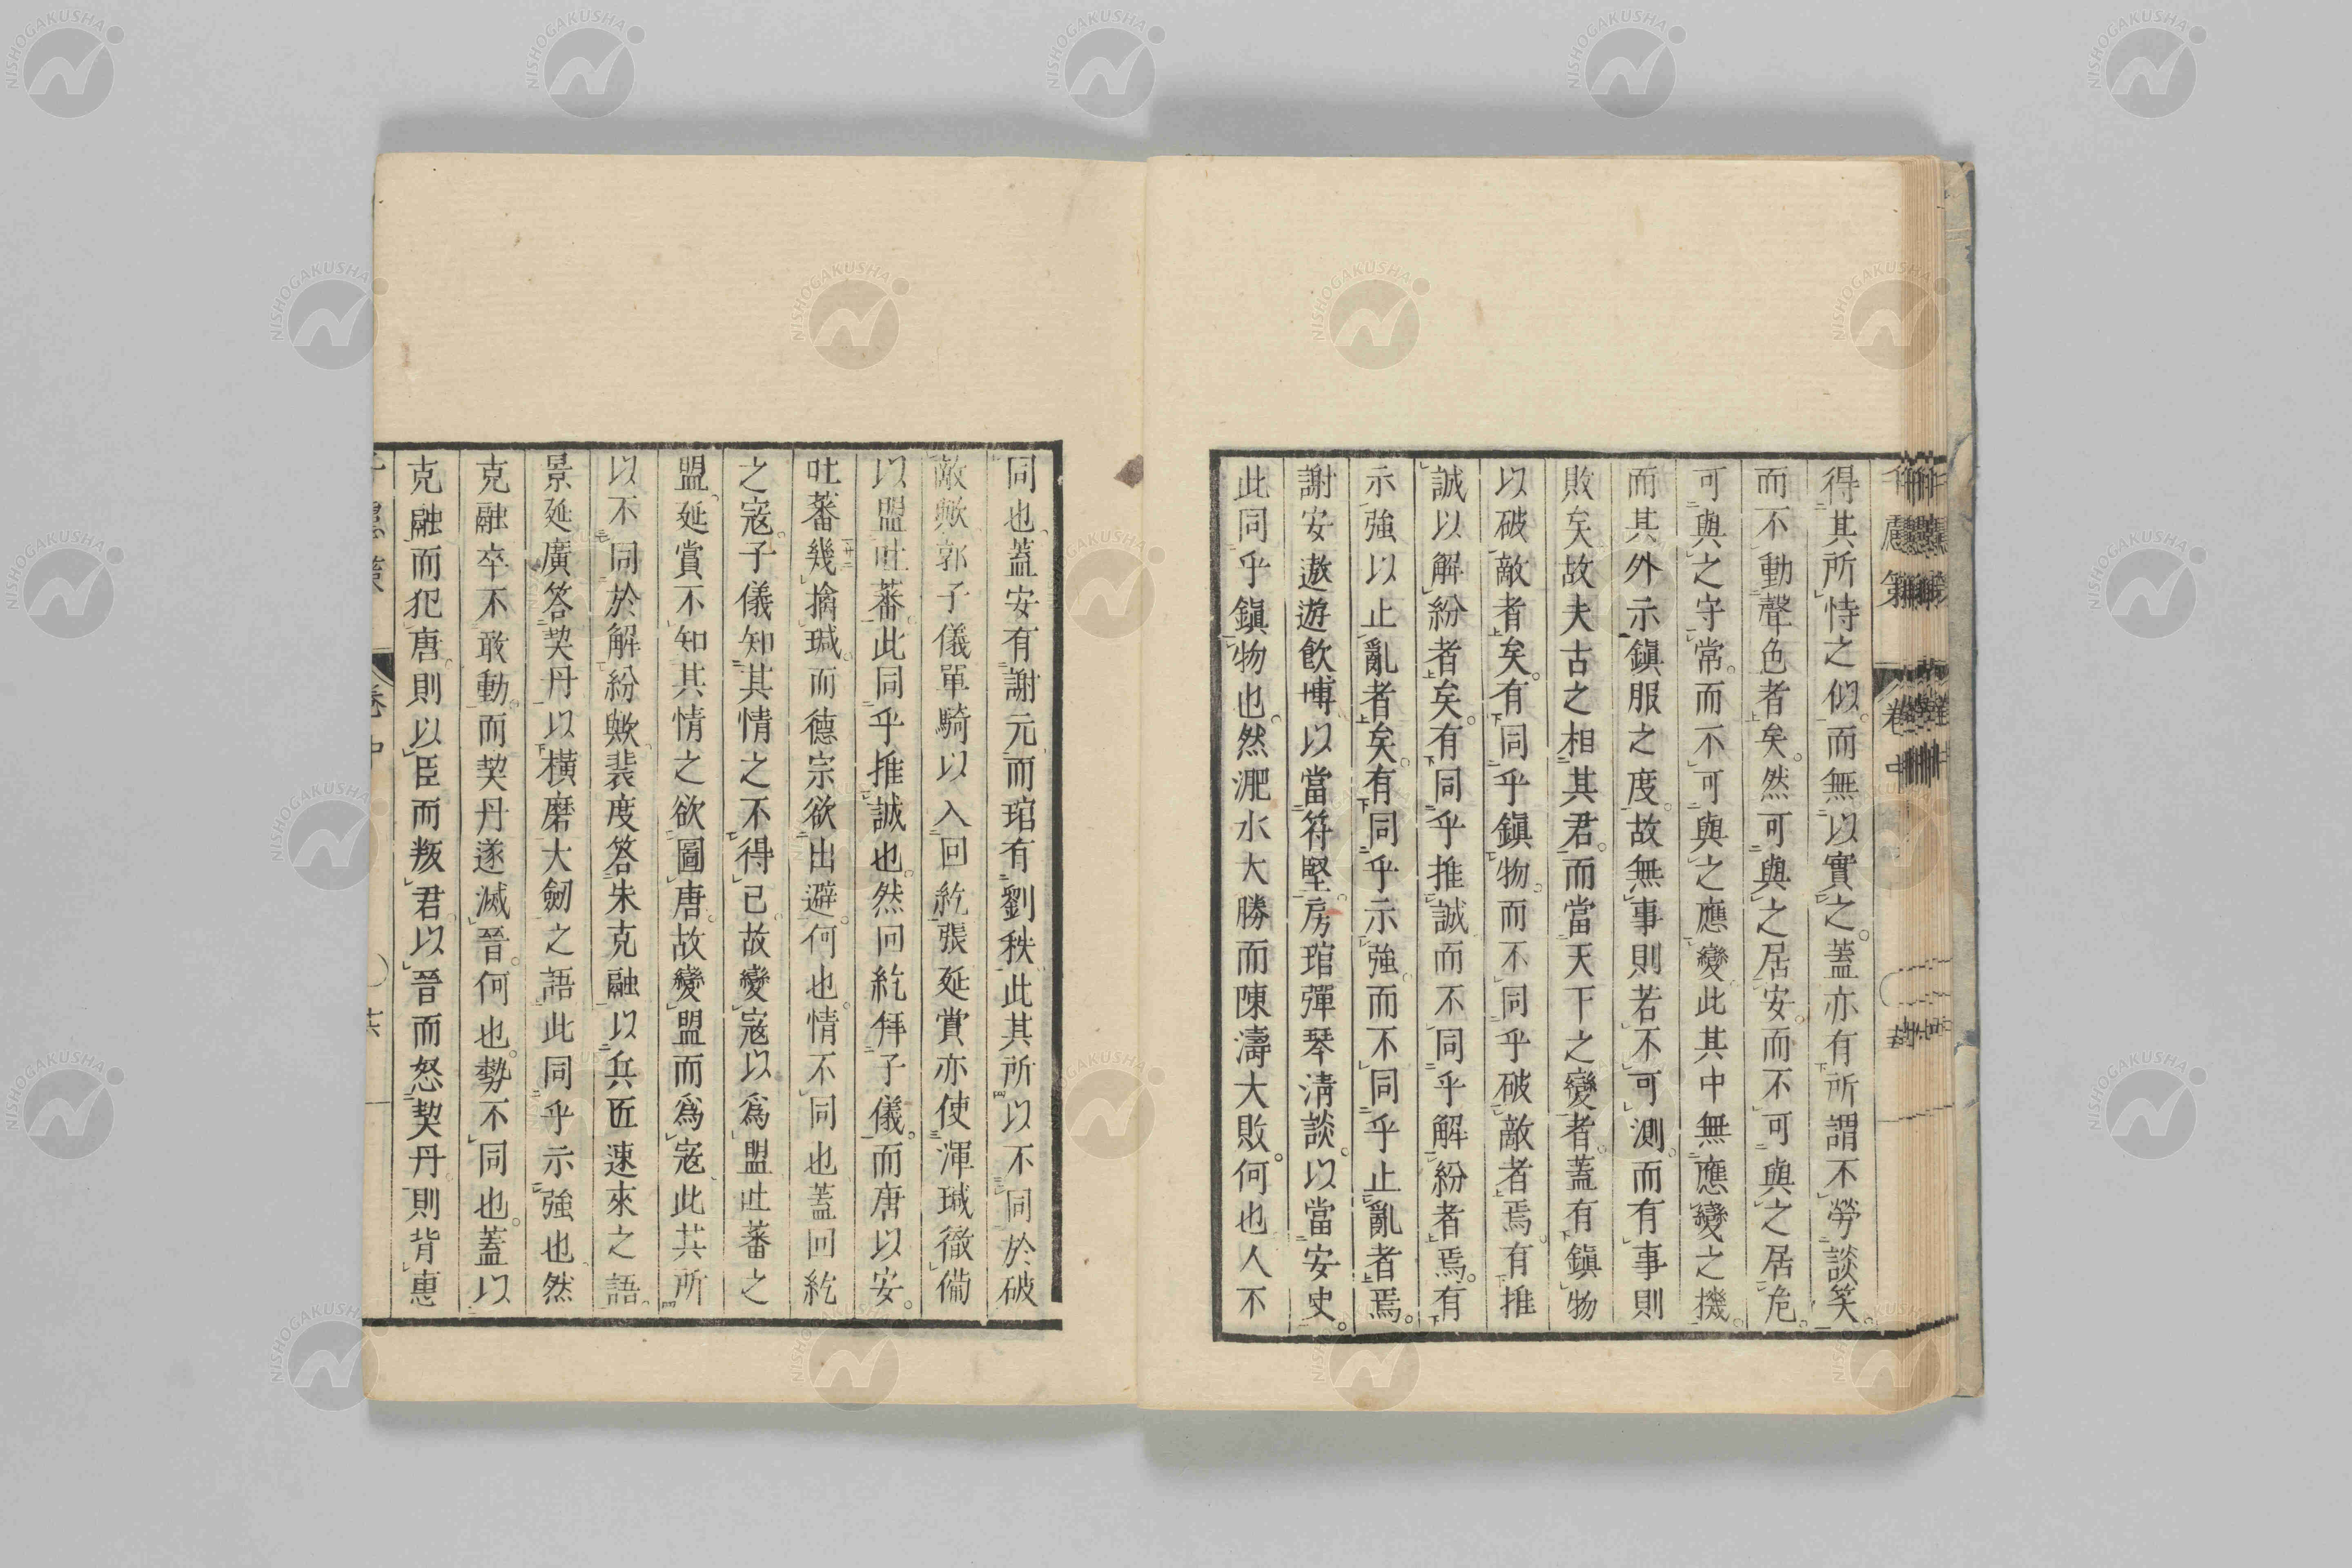 得其所恃之似。而無以實之。蓋亦有所謂不勞談笑。
而不動聲色者矣。然可與之居安。而不可與之居危。
可與之守常。而不可與之應變。此其中無應變之機。
而其外示鎭服之度。故無事則若不可測。而有事則
敗矣。故夫古之相其君。而當天下之變者。蓋有鎭物
以破敵者矣。有同乎鎭物。而不同乎破敵者焉。有推
誠以解紛者矣。有同乎推誠而不同乎解紛者焉。有
示強以止亂者矣。有同乎示強。而不同乎止亂者焉。
謝安遨遊飲博。以當苻堅。房琯彈琴淸談。以當安史。
此同乎鎭物也。然淝水大勝而陳濤大敗。何也。人不
同也。蓋安有謝元而琯有劉秩。此其所以不同於破
敵歟。郭子儀單騎以入回紇。張延賞亦使渾瑊徹備
以盟吐蕃。此同乎推誠也。然回紇拜子儀。而唐以安。
吐蕃幾擒瑊。而德宗欲出避。何也。情不同也。蓋回紇
之寇。子儀知其情之不得已。故變寇以爲盟。吐蕃之
盟。延賞不知其情之欲圖唐。故變盟而爲寇。此其所
以不同於解紛歟。裴度答朱克融以兵匠速來之語。
景延廣答契丹以橫磨大劒之語。此同乎示強也。然
克融卒不敢動。而契丹遂滅晉。何也。勢不同也。蓋以
克融而犯唐。則以臣而叛君。以晉而怒契丹。則背惠
卷中